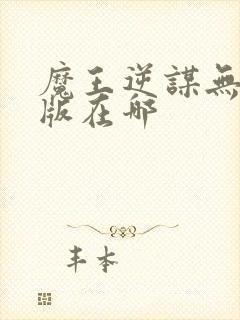 魔王逆謀無
版在哪
丰本